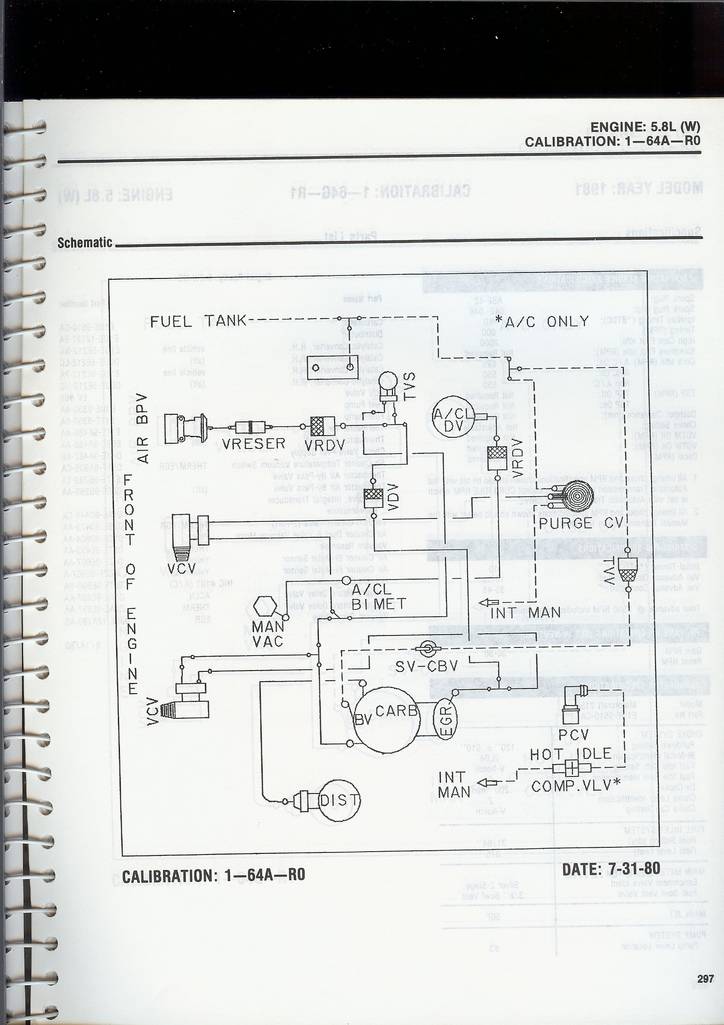 ENGINE: 5.8L (W)
CALIBRATION: 1—64A—R0
MODEL YEAR: 1981
CALIBRATION: 1—64G—R1
ENGINE: 5.8L (W)
Schematic
FUEL TANK
*A/C ONLY
AIR BPV
VRESER
VRDV
TVS
A/CL
DV
VRDV
VDV
PURGE CV
FRONT OF ENGINE
VCV
A/CL
BI MET
TVV
MAN
VAC
INT MAN
SV-CBV
VCV
BV
CARB
EGR
PCV
HOT IDLE
COMP.VLV*
INT
MAN
DIST
CALIBRATION: 1—64A—R0
DATE: 7-31-80
297